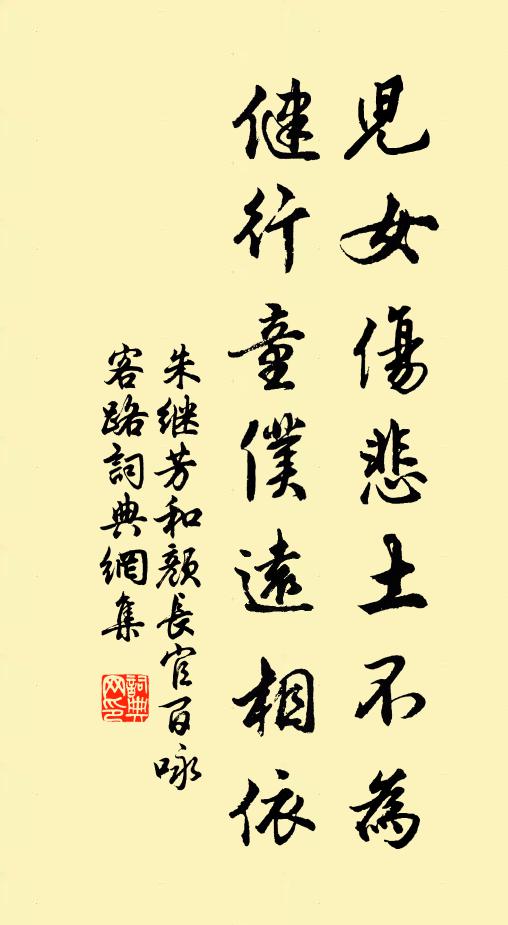 兒女傷悲土不為
健行童僕遠相依
朱继芳和颜長官百咏
客路詞典網集
詞典
网印